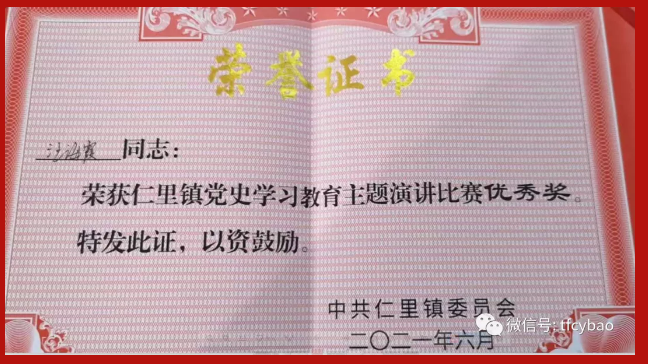 荣誉证书
同志：
荣获仁里镇党史学习教育主题演讲比赛优秀奖。
特发此证，以资鼓励。
中共仁里镇委员会
二〇二一年六月
微信号: tfcybao